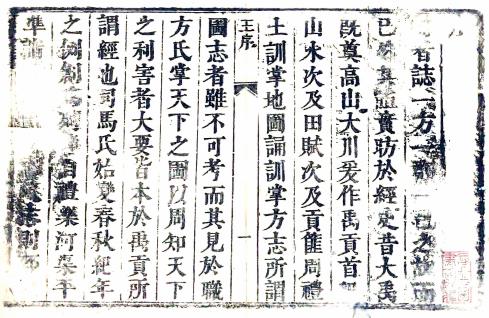 者誌一方一一邑之故而
已實昉於經史昔大禹
既奠高山大川爰作禹貢首
山水次及田賦次及貢篚周禮
土訓掌地圖誦訓掌方志所謂
王序
一
國志者雖不可考而其見於職
方氏掌天下之圖以周知天下
之利害者大要皆本於禹貢所
謂經也司馬氏始變春秋紀年
之例創自禮樂河渠平
準諸志則